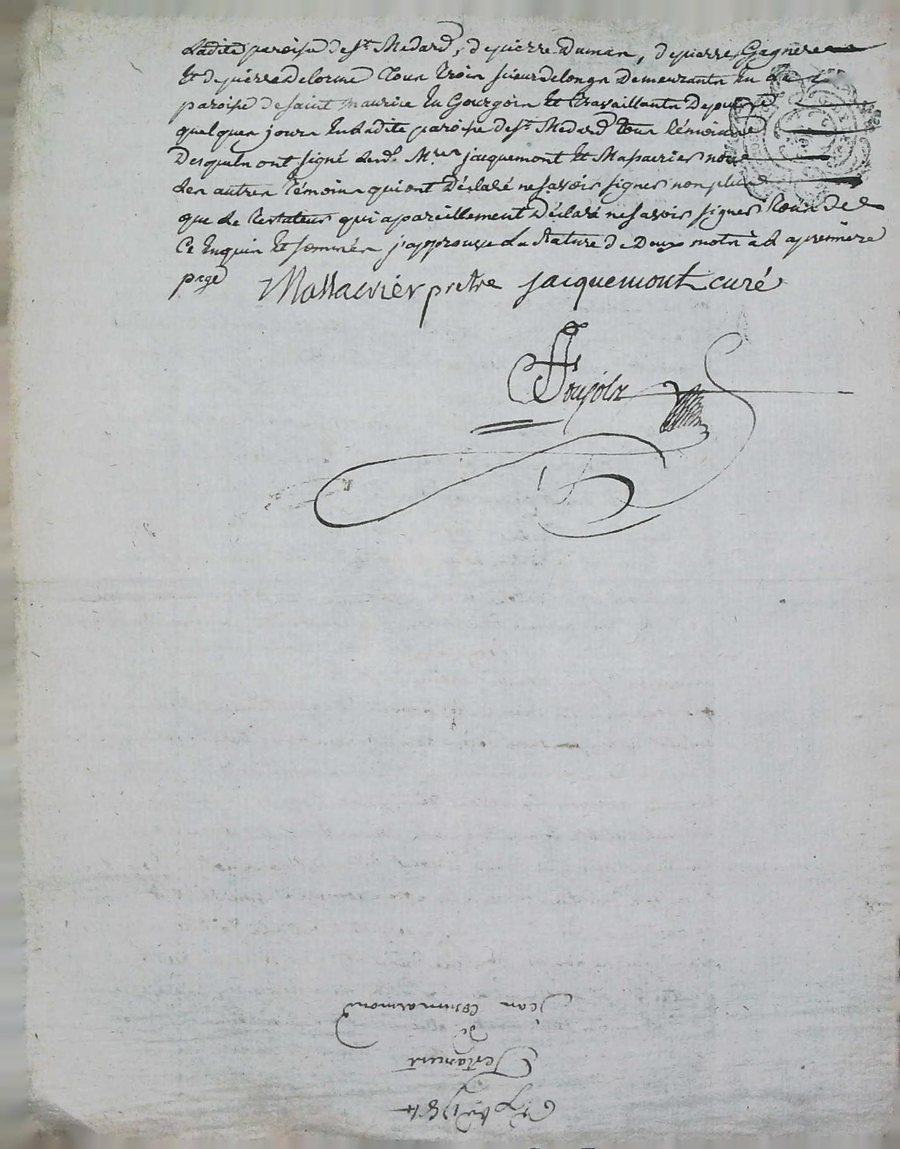 Ladite paroise de st Medard, de pierre Dumas, de pierre Gagnere
Et de pierre delorme tous trois sieurs de long Demeurants En la
paroise de saint maurice En Gourgois Et travaillants Depuis
quelques jours En Ladite paroise de st Medard tous témoins
Desquels ont signé Lesds. Mres jacquemont Et Massacrier non
Les autres témoins qui ont Déclaré ne savoir signer non plus
que Le testateur qui a pareillement Déclaré ne savoir signer de
Ce Enquis Et sommés j'approuve La Rature de Deux mots à La première
page
Massacrier prêtre jacquemont curé
7bre 1784
Testament
de
jean Commarmond